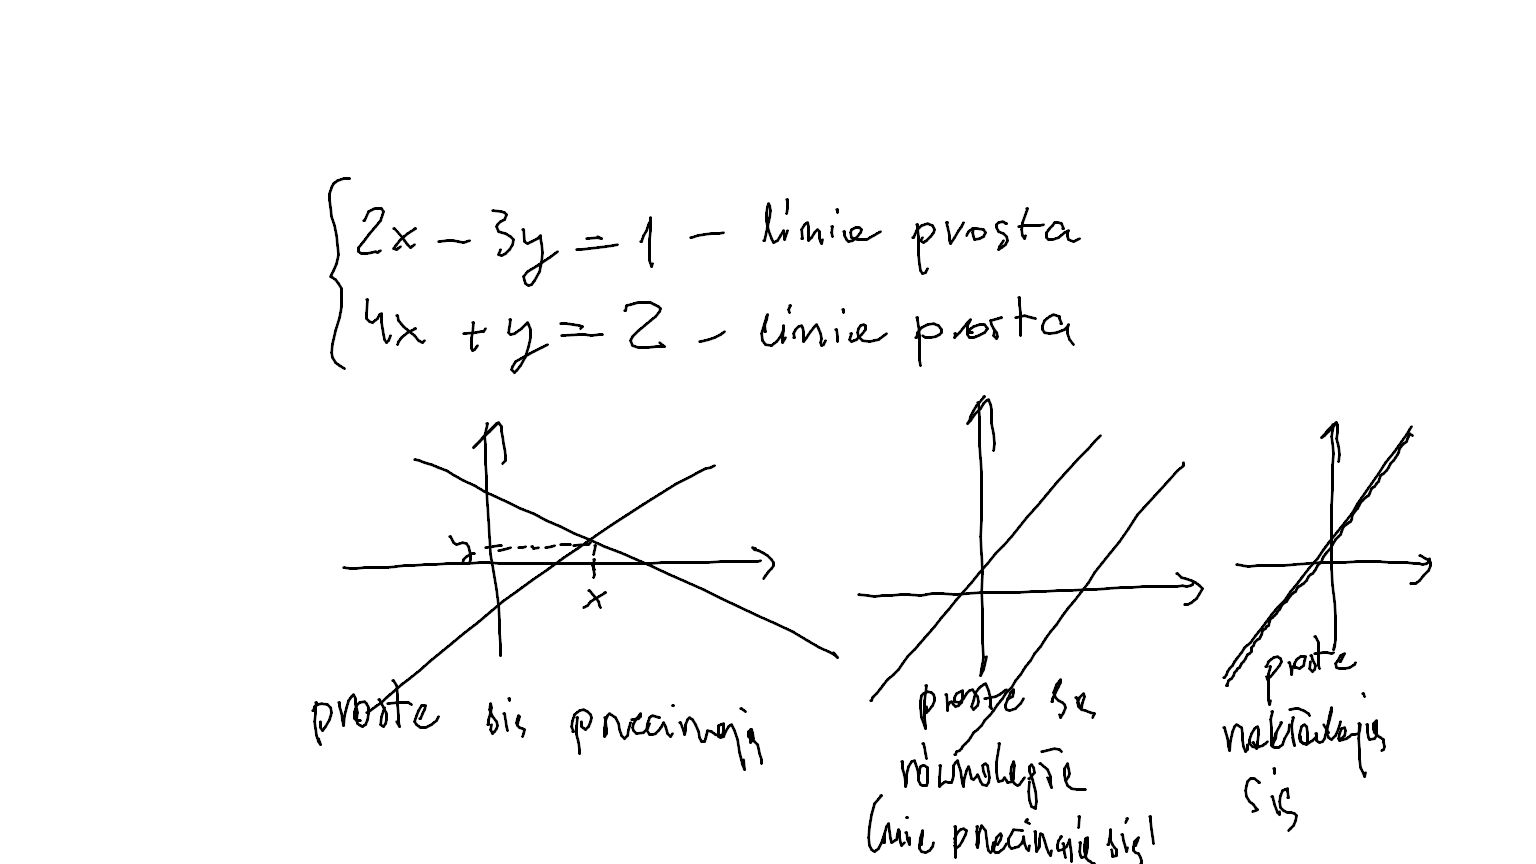 2x - 3y = 1 - linia prosta
4x + y = 2 - linia prosta
y
x
proste się przecinają
proste są
równoległe
(nie przecinają się)
proste
nakładają
się